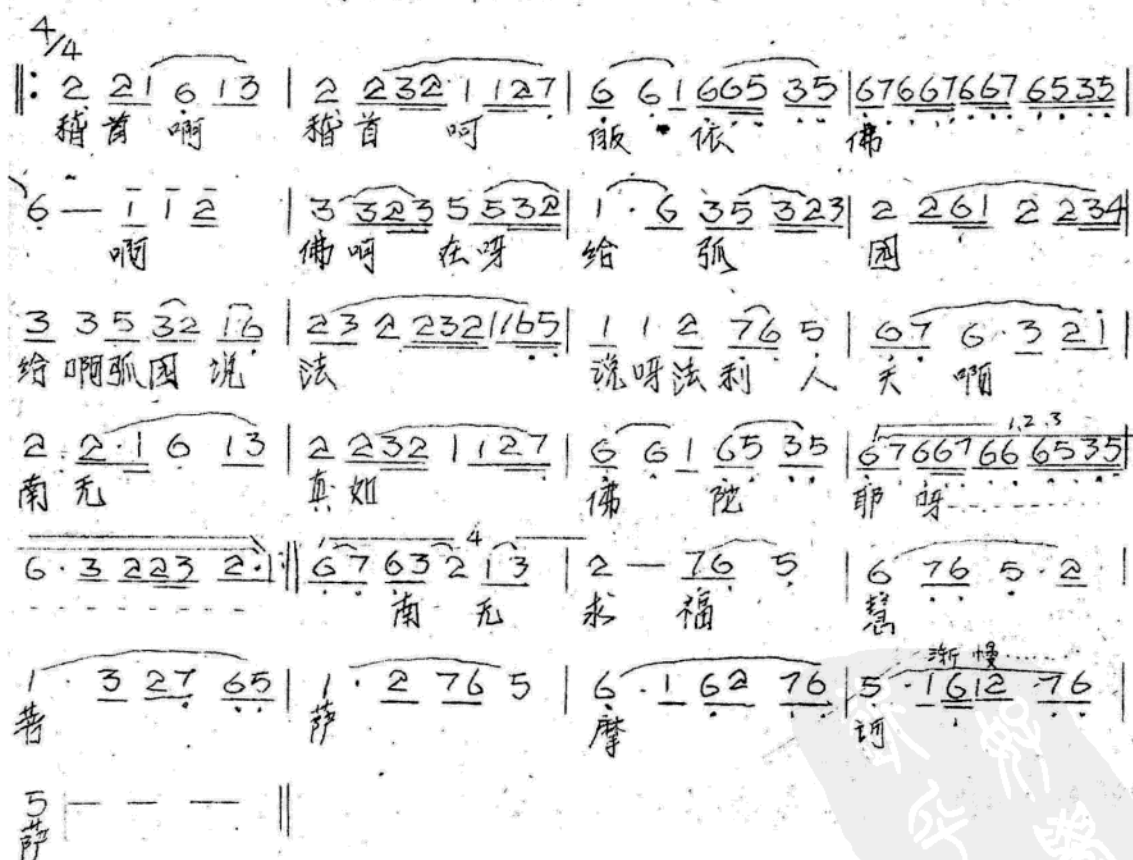 4/4
‖: 2 221 6 13 | 2 2232 1 127 | 6 6 1 665 35 | 67667667 6535 |
稽首 啊 稽首 呵 皈 依 佛
6 — 1 1 2 | 3 323 5 532 | 1 · 6 35 323 | 2 261 2 234 |
啊 佛啊 在呀 给 弧 园
3 3 5 32 16 | 23 2 232 1165 | 1 1 2 76 5 | 67 6 · 3 21 |
给啊弧园 说 法 说呀法利 人 天 啊
2 2·1 6 13 | 2 232 1 127 | 6 6 1 65 35 | 67667 66 6535 |
1.2.3
南 无 真 如 佛 陀 耶 呀
6 · 3 223 2·1 :‖ 67 63 2 13 | 2 — 76 5 | 6 76 5 · 2 |
4
南 无 求 福 慧
1 · 3 27 65 | 1 · 2 76 5 | 6 · 1 62 76 | 5 · 1 612 76 |
渐慢
菩 萨 摩 诃
5 — — — ‖
萨